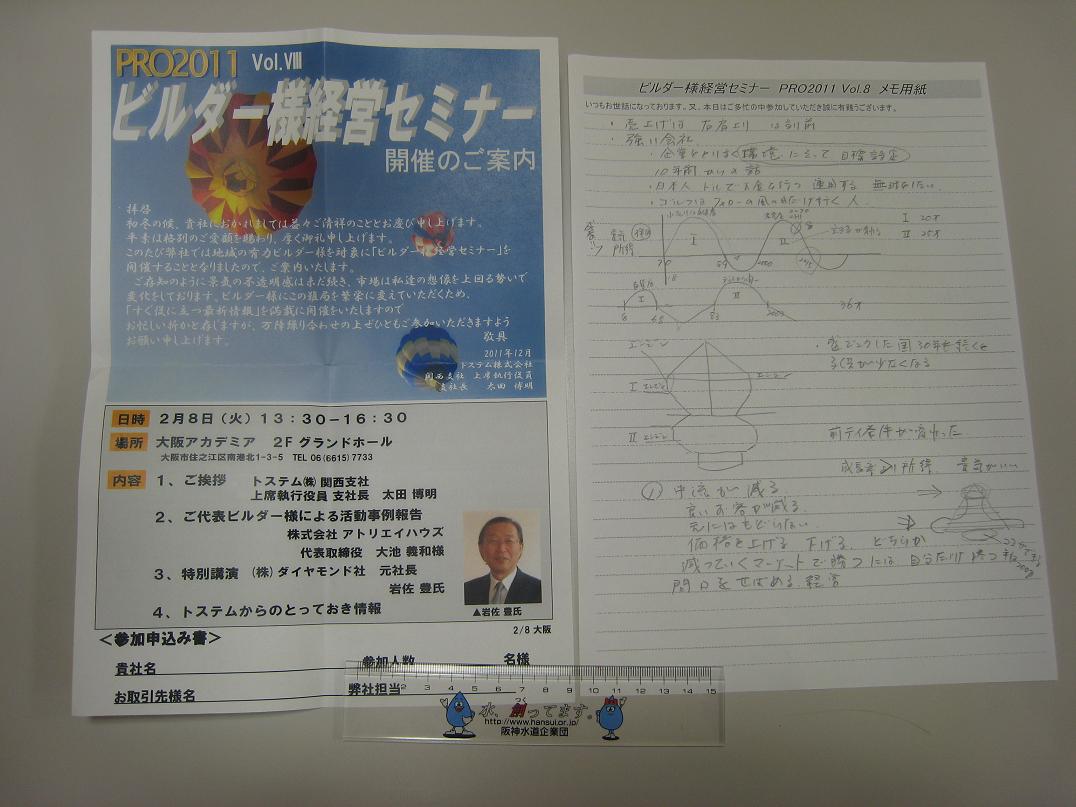 PRO2011 Vol.Ⅷ
ビルダー様経営セミナー
開催のご案内
拝啓
初冬の候、貴社におかれましては益々ご清祥のこととお慶び申し上げます。
平素は格別のご愛顧を賜わり、厚く御礼申し上げます。
このたび弊社では地域の有力ビルダー様を対象に「ビルダー様経営セミナー」を
開催することとなりましたので、ご案内いたします。
ご存知のように景気の不透明感は未だ続き、市場は私達の想像を上回る勢いで
変化をしております。ビルダー様にこの難局を繁栄に変えていただくため、
「すぐ役に立つ最新情報」を満載に開催をいたしますので
お忙しい折かと存じますが、万障繰り合わせの上ぜひともご参加いただきますよう
お願い申し上げます。
敬具
2011年12月
トステム株式会社
関西支社 上席執行役員
支社長 太田 博明
日時 2月8日(火)13:30-16:30
場所 大阪アカデミア 2F グランドホール
大阪市住之江区南港北1-3-5 TEL 06(6615)7733
内容 1、ご挨拶 トステム㈱ 関西支社
上席執行役員 支社長 太田 博明
2、ご代表ビルダー様による活動事例報告
株式会社 アトリエイハウズ
代表取締役 大池 義和様
3、特別講演 (株)ダイヤモンド社 元社長
岩佐 豊氏
4、トステムからのとっておき情報
▲岩佐 豊氏
2/8 大阪
<参加申込み書>
貴社名 参加人数 名様
お取引先様名 弊社担当
2 3 4 5 6 7 8 9 10 11 12 13 14 15
水、創ってます。
つく
http://www.hansui.or.jp/
阪神水道企業団
ビルダー様経営セミナー PRO2011 Vol.8 メモ用紙
いつもお世話になっております。又、本日はご多忙の中参加していただき誠に有難うございます。
・売上げは 右肩上り は当り前
・強い会社
・企業をとりまく環境 によって目標設定
10年前からの話
Ⅰ 20才
Ⅱ 25才
Ⅰ
Ⅱ
36才
エンジン
Ⅰ エンジン
Ⅱ エンジン
前テイ条件が変わった
① 中流が減る
良いお客が減る
元にはもどらない
価格を上げる 下げる どちらか
減っていくマーケットで勝つには 自分だけ勝つ
間口をせばめる 経営